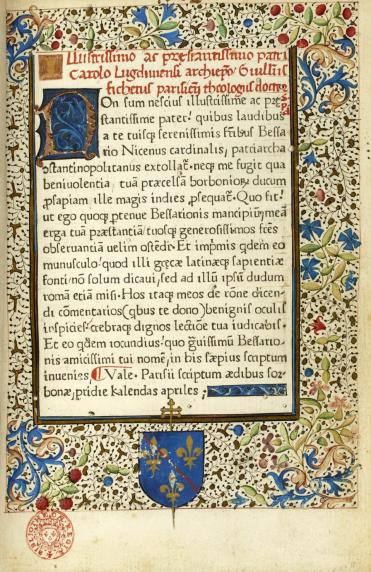 Illustrissimo ac præstantissimo patri
Carolo Lugdunensi archiepo Guillermus
fichetus parisieñ theologus doctor
Non sum nescius illustrissime ac præ
stantissime pater: quibus laudibus
a te tuisq; serenissimis frībus Bessa
rio Nicenus cardinalis, patriarcha
ostantinopolitanus extollat̃. neq; me fugit qua
beniuolentia, tuā præcelsā borbonioꝝ ducum
ꝓsapiam ille magis indies ꝓsequat̃. Quo fit:
ut ego quoq; Bessarionis mancipiū, meā
erga tuā præstantiā, tuosq; generosissimos frēs
obseruantiā uelim ostēdi. Et imprimis qdem eo
munusculo: quod illi grecæ latinæq; sapientiæ
fonti nō solum dicaui, sed ad illū ipsū dudum
romā etiā misi. Hos itaq; meos de rōne dicen
di cōmentarios (qbus te dono) benignis oculis
inspicies: crebraq; dignos lectiōe tua iudicabis.
Et eo qdem iocundius: quo Bessario
nis amicissimi tui nomē, in bis sæpius scriptum
inuenies. Vale. Parisii scriptum ædibus sor
bonæ, pridie kalendas apriles;